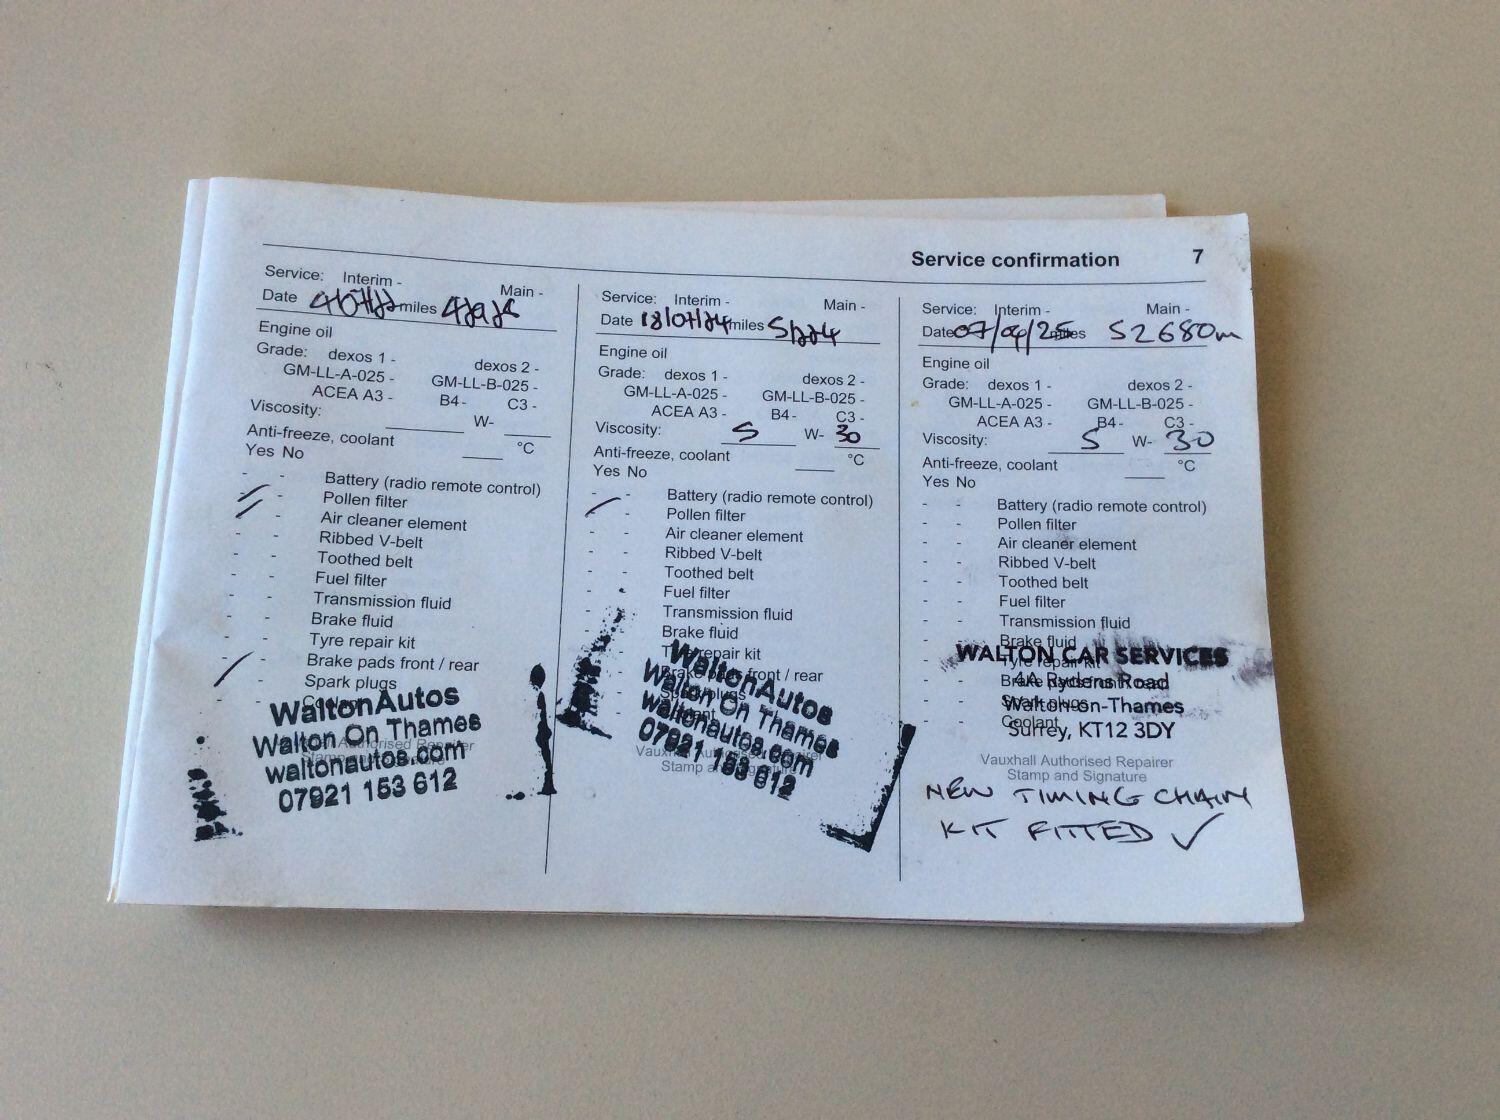 Service confirmation 7
Service: Interim - Main -
Date miles
Engine oil
Grade: dexos 1 - dexos 2 -
GM-LL-A-025 - GM-LL-B-025 -
ACEA A3 - B4 - C3 -
Viscosity: W-
Anti-freeze, coolant °C
Yes No
- - Battery (radio remote control)
- - Pollen filter
- - Air cleaner element
- - Ribbed V-belt
- - Toothed belt
- - Fuel filter
- - Transmission fluid
- - Brake fluid
- - Tyre repair kit
- - Brake pads front / rear
- - Spark plugs
Coolant
WaltonAutos
Walton On Thames
waltonautos.com
07921 153 612
Authorised Repairer
Service: Interim - Main -
Date 18/07/24 miles
Engine oil
Grade: dexos 1 - dexos 2 -
GM-LL-A-025 - GM-LL-B-025 -
ACEA A3 - B4 - C3 -
Viscosity: 5 W- 30
Anti-freeze, coolant °C
Yes No
- - Battery (radio remote control)
- - Pollen filter
- - Air cleaner element
- - Ribbed V-belt
- - Toothed belt
- - Fuel filter
- - Transmission fluid
- - Brake fluid
- - Tyre repair kit
- - Brake pads front / rear
- - Spark plugs
WaltonAutos
Walton On Thames
waltonautos.com
07921 153 612
Vauxhall Authorised Repairer
Stamp and Signature
Service: Interim - Main -
Date 07/04/25 miles 52680m
Engine oil
Grade: dexos 1 - dexos 2 -
GM-LL-A-025 - GM-LL-B-025 -
ACEA A3 - B4 - C3 -
Viscosity: 5 W- 30
Anti-freeze, coolant °C
Yes No
- - Battery (radio remote control)
- - Pollen filter
- - Air cleaner element
- - Ribbed V-belt
- - Toothed belt
- - Fuel filter
- - Transmission fluid
- - Brake fluid
- - Tyre repair kit
- - Brake pads front / rear
- - Spark plugs
- - Coolant
WALTON CAR SERVICES
4A Rydens Road
Walton-on-Thames
Surrey, KT12 3DY
Vauxhall Authorised Repairer
Stamp and Signature
NEW TIMING CHAIN
KIT FITTED ✓